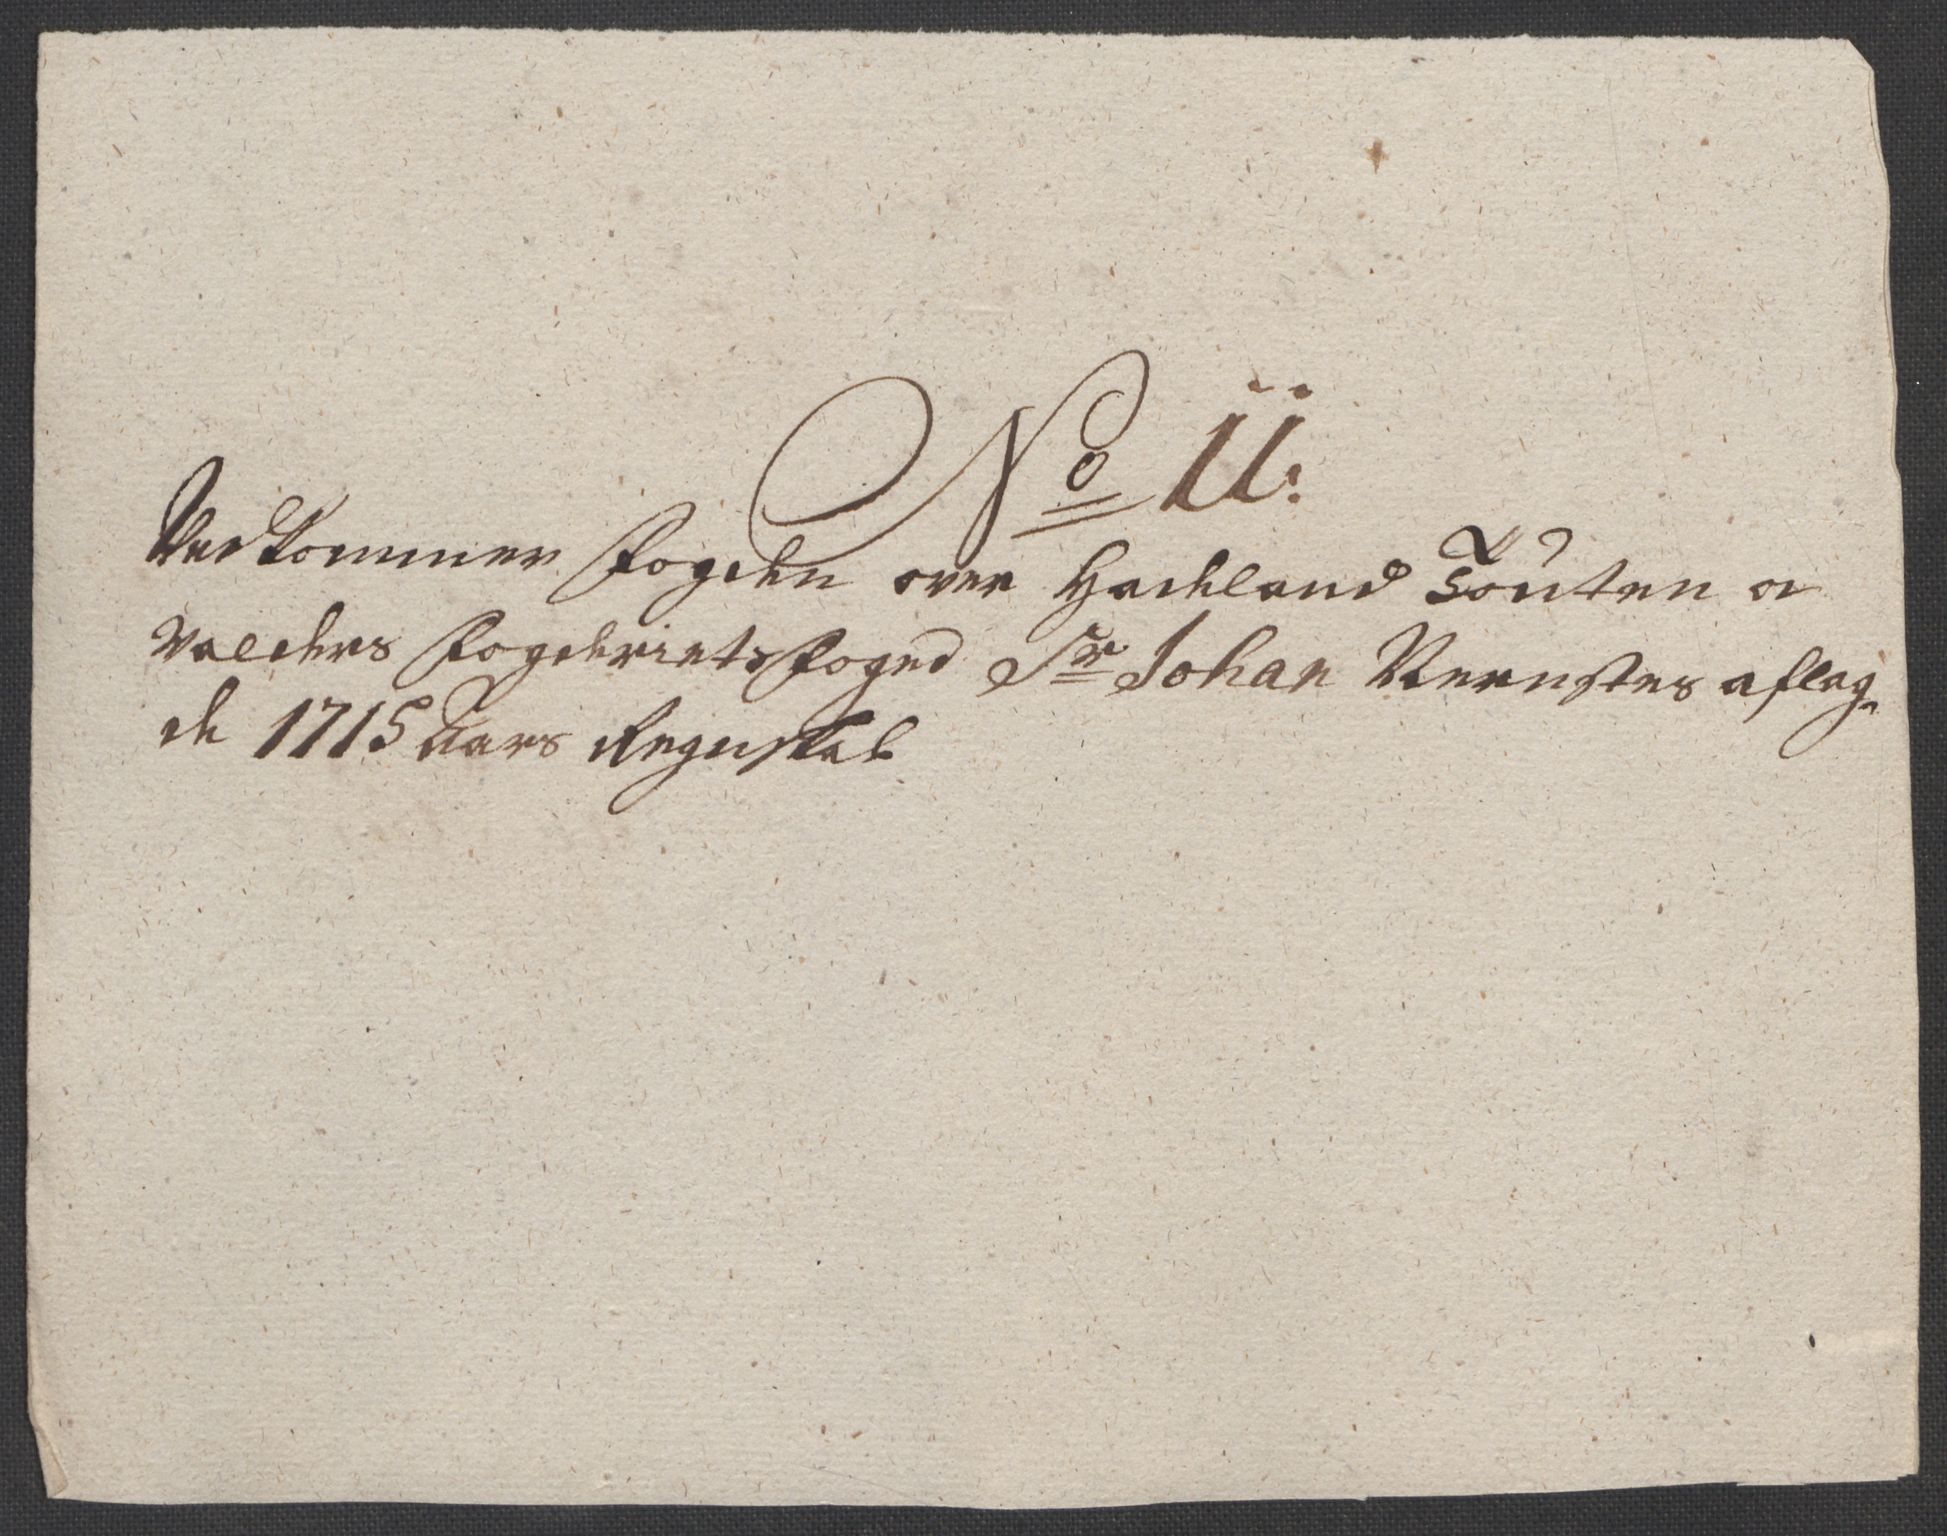 No 11:
Vedkommer Fogden over Hadeland Touten o
Valders Fogderiets Foged Sr Johan Vernstes aflag-
de 1715 Aars Regnskab